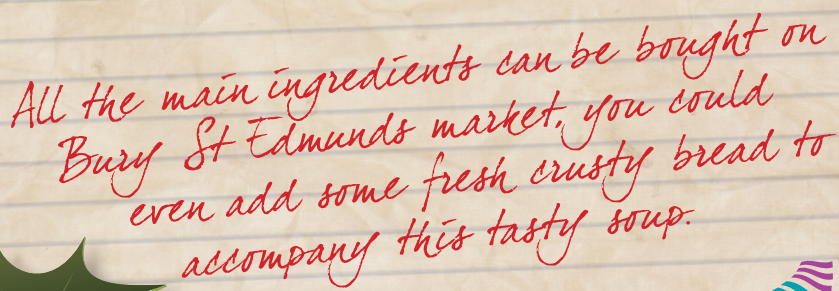 All the main ingredients can be bought on
Bury St Edmunds market, you could
even add some fresh crusty bread to
accompany this tasty soup.